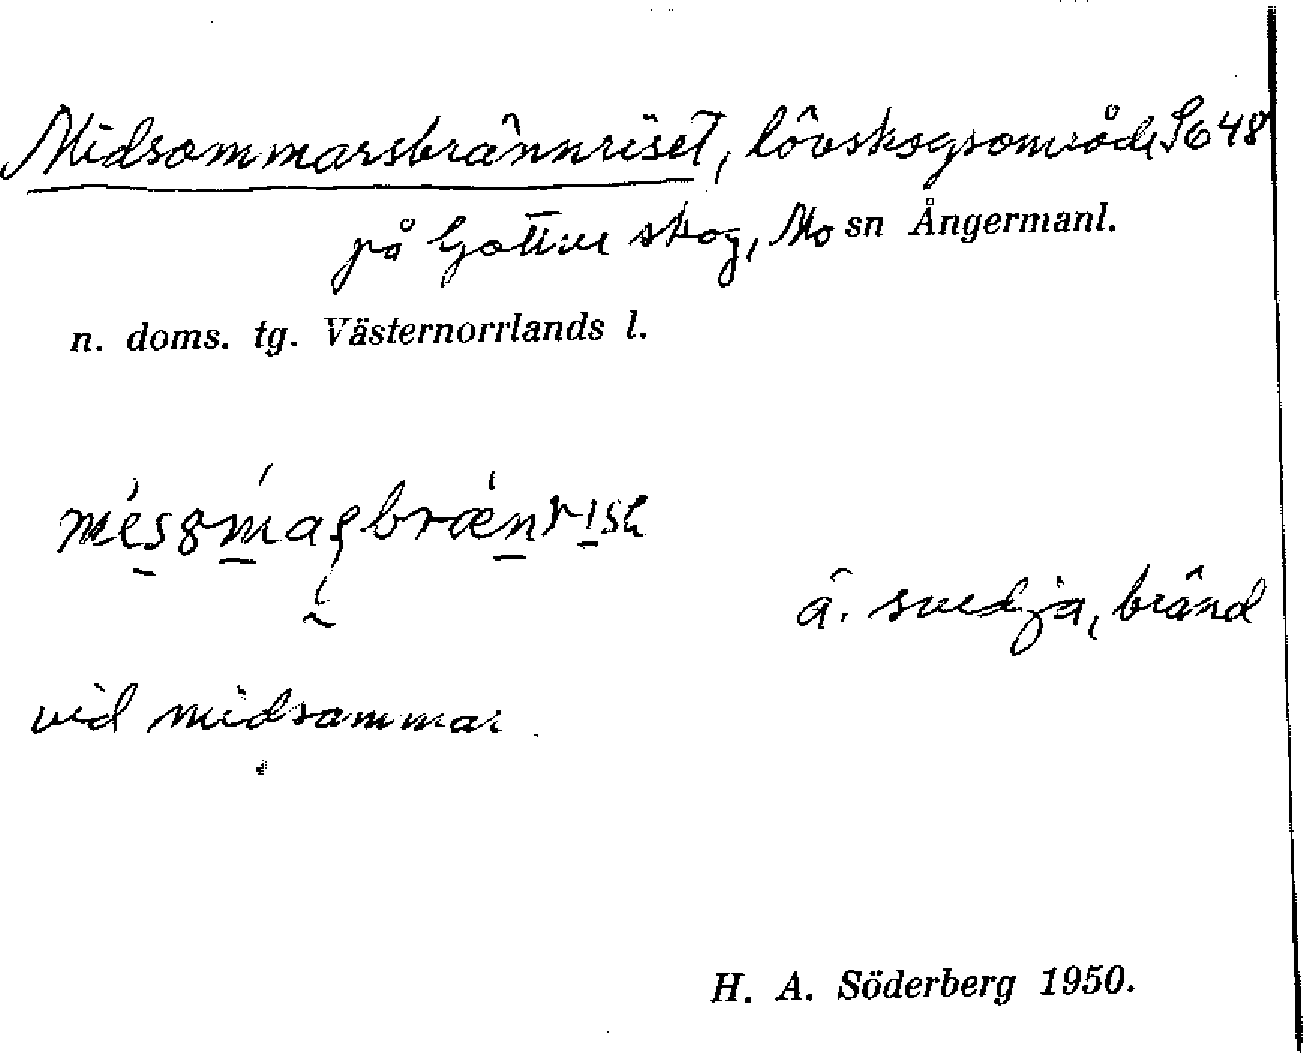 Midsommarsbrännriset, lövskogsområde S648
på Gottne skog, Mo sn Ångermanl.
n. doms. tg. Västernorrlands l.
ä. svedja, bränd
vid midsommar
H. A. Söderberg 1950.